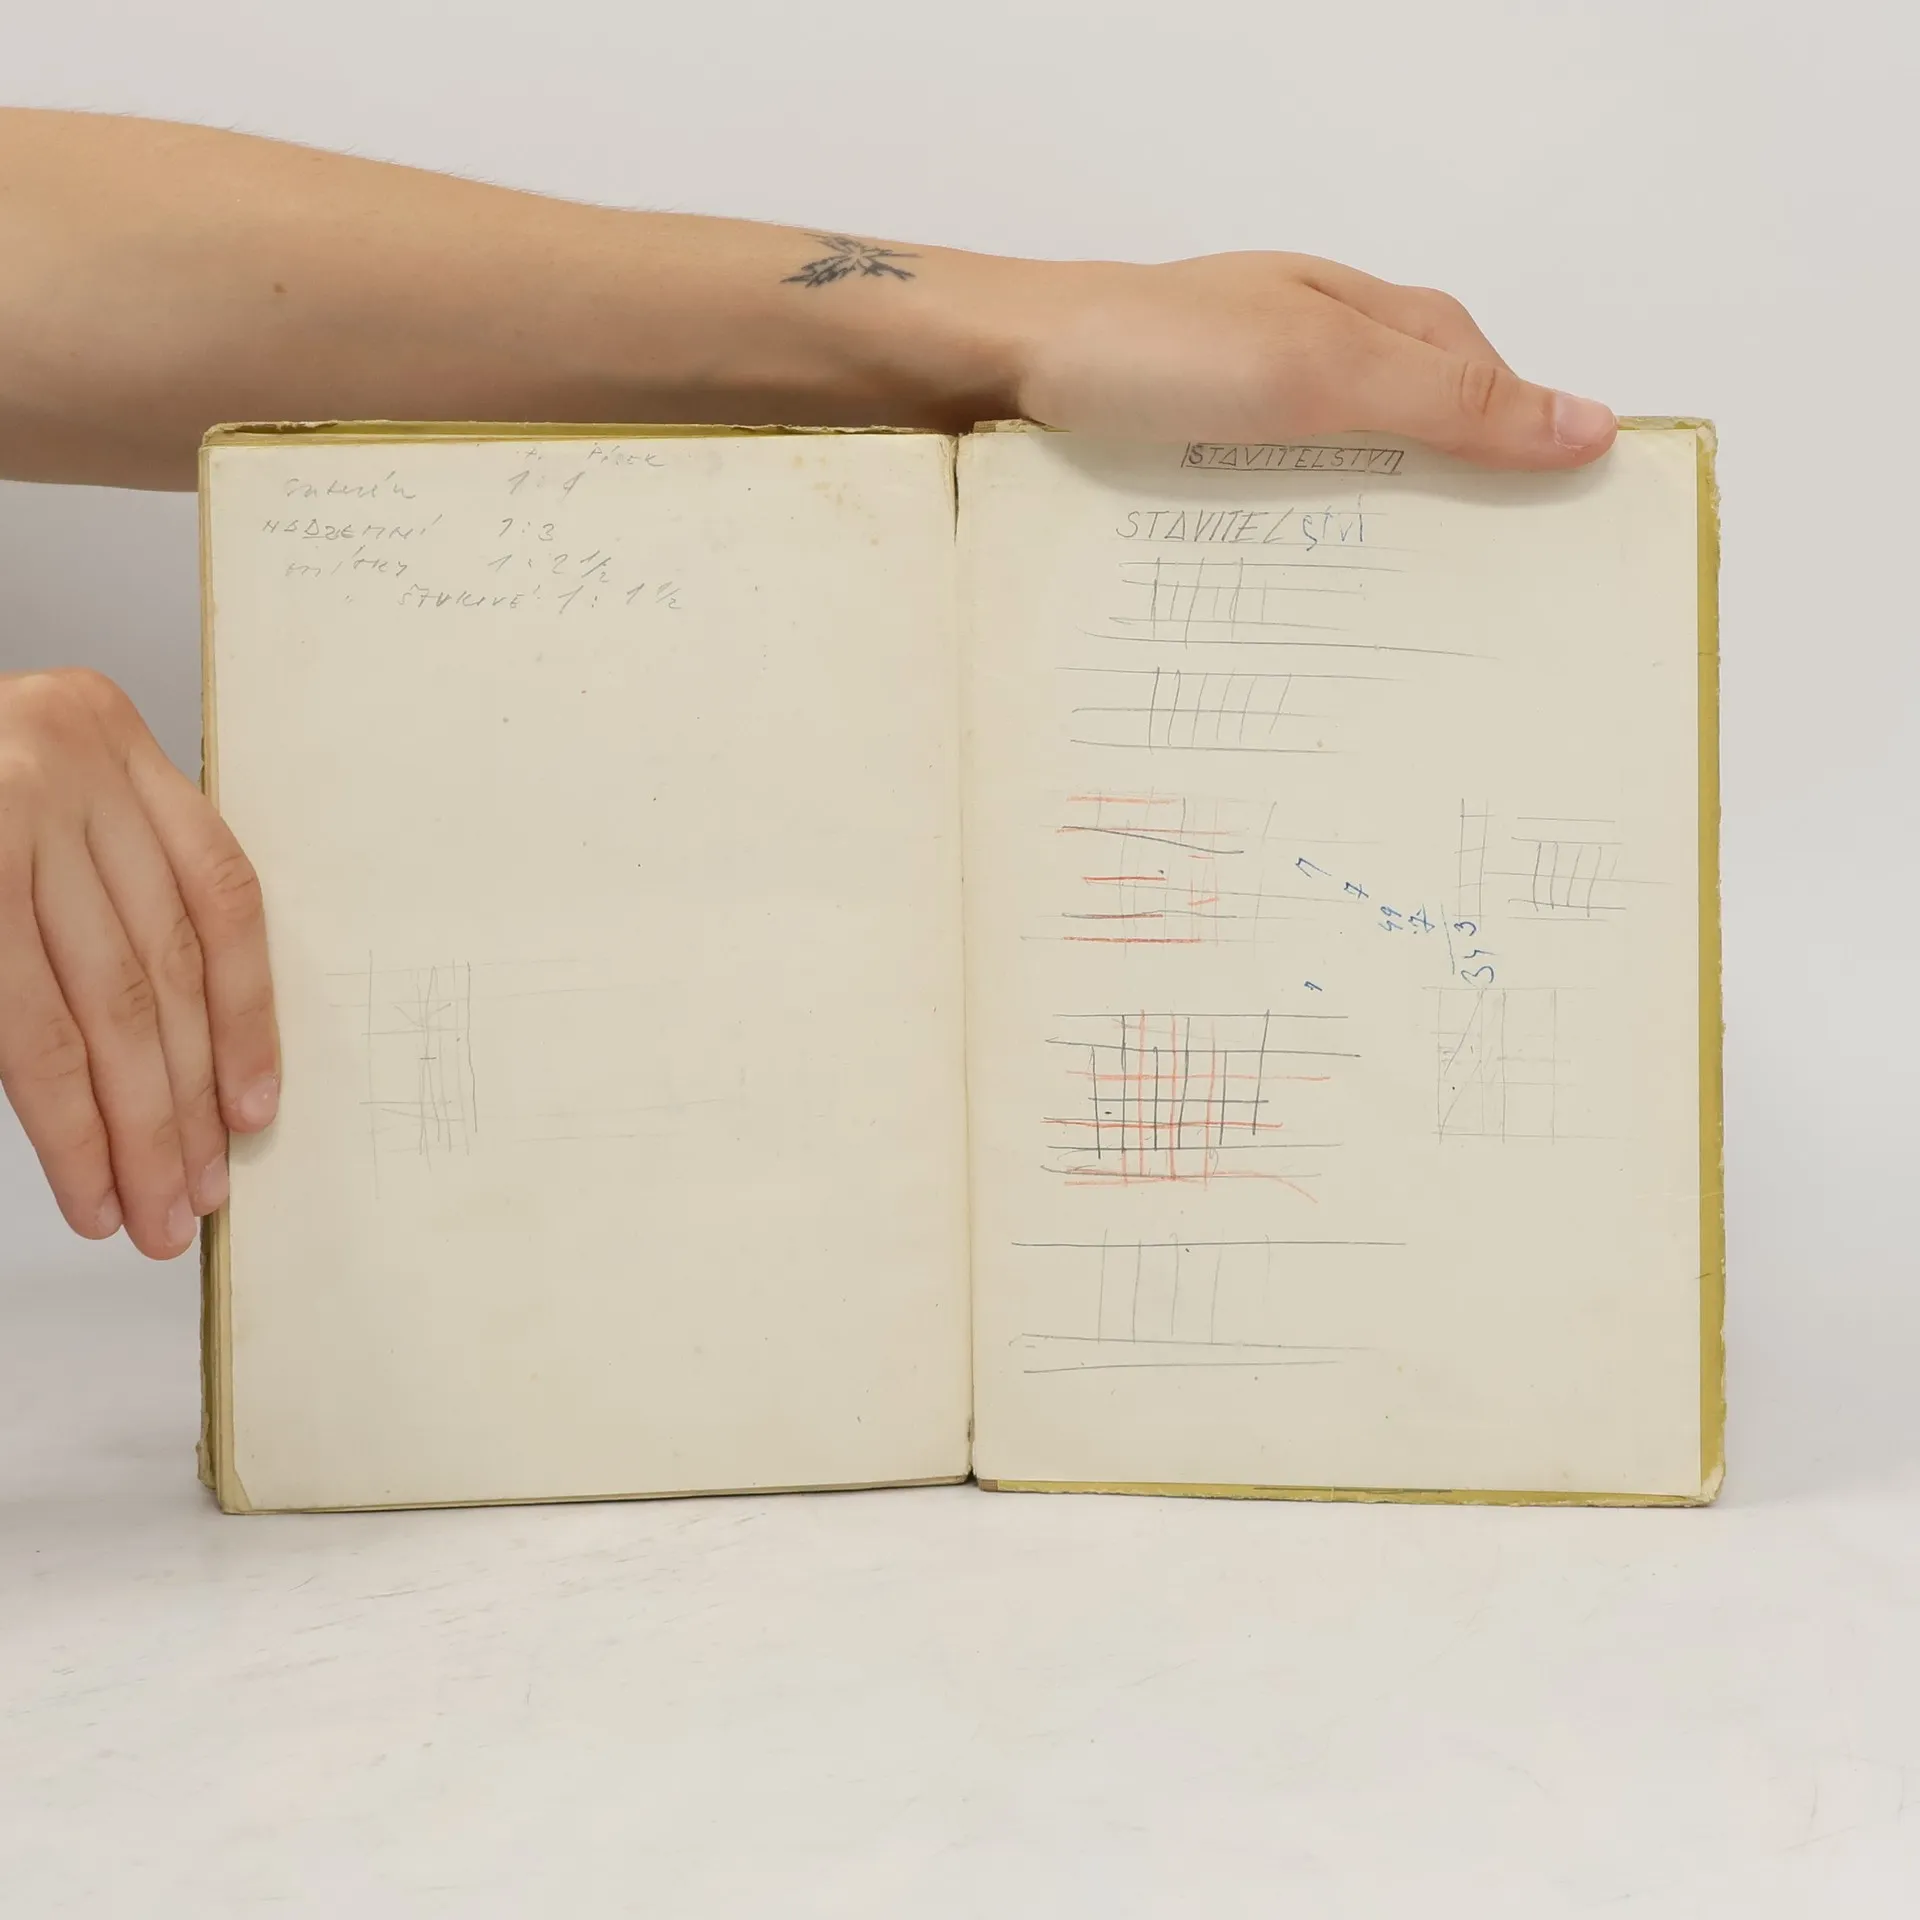 PÍSEK
1:4
NADZEMNÍ 1:3
OMÍTKY 1:2 1/2
" ŠTUKOVÉ 1: 1 1/2
STAVITELSTVÍ
STAVITELství
7
7
49
.7
343